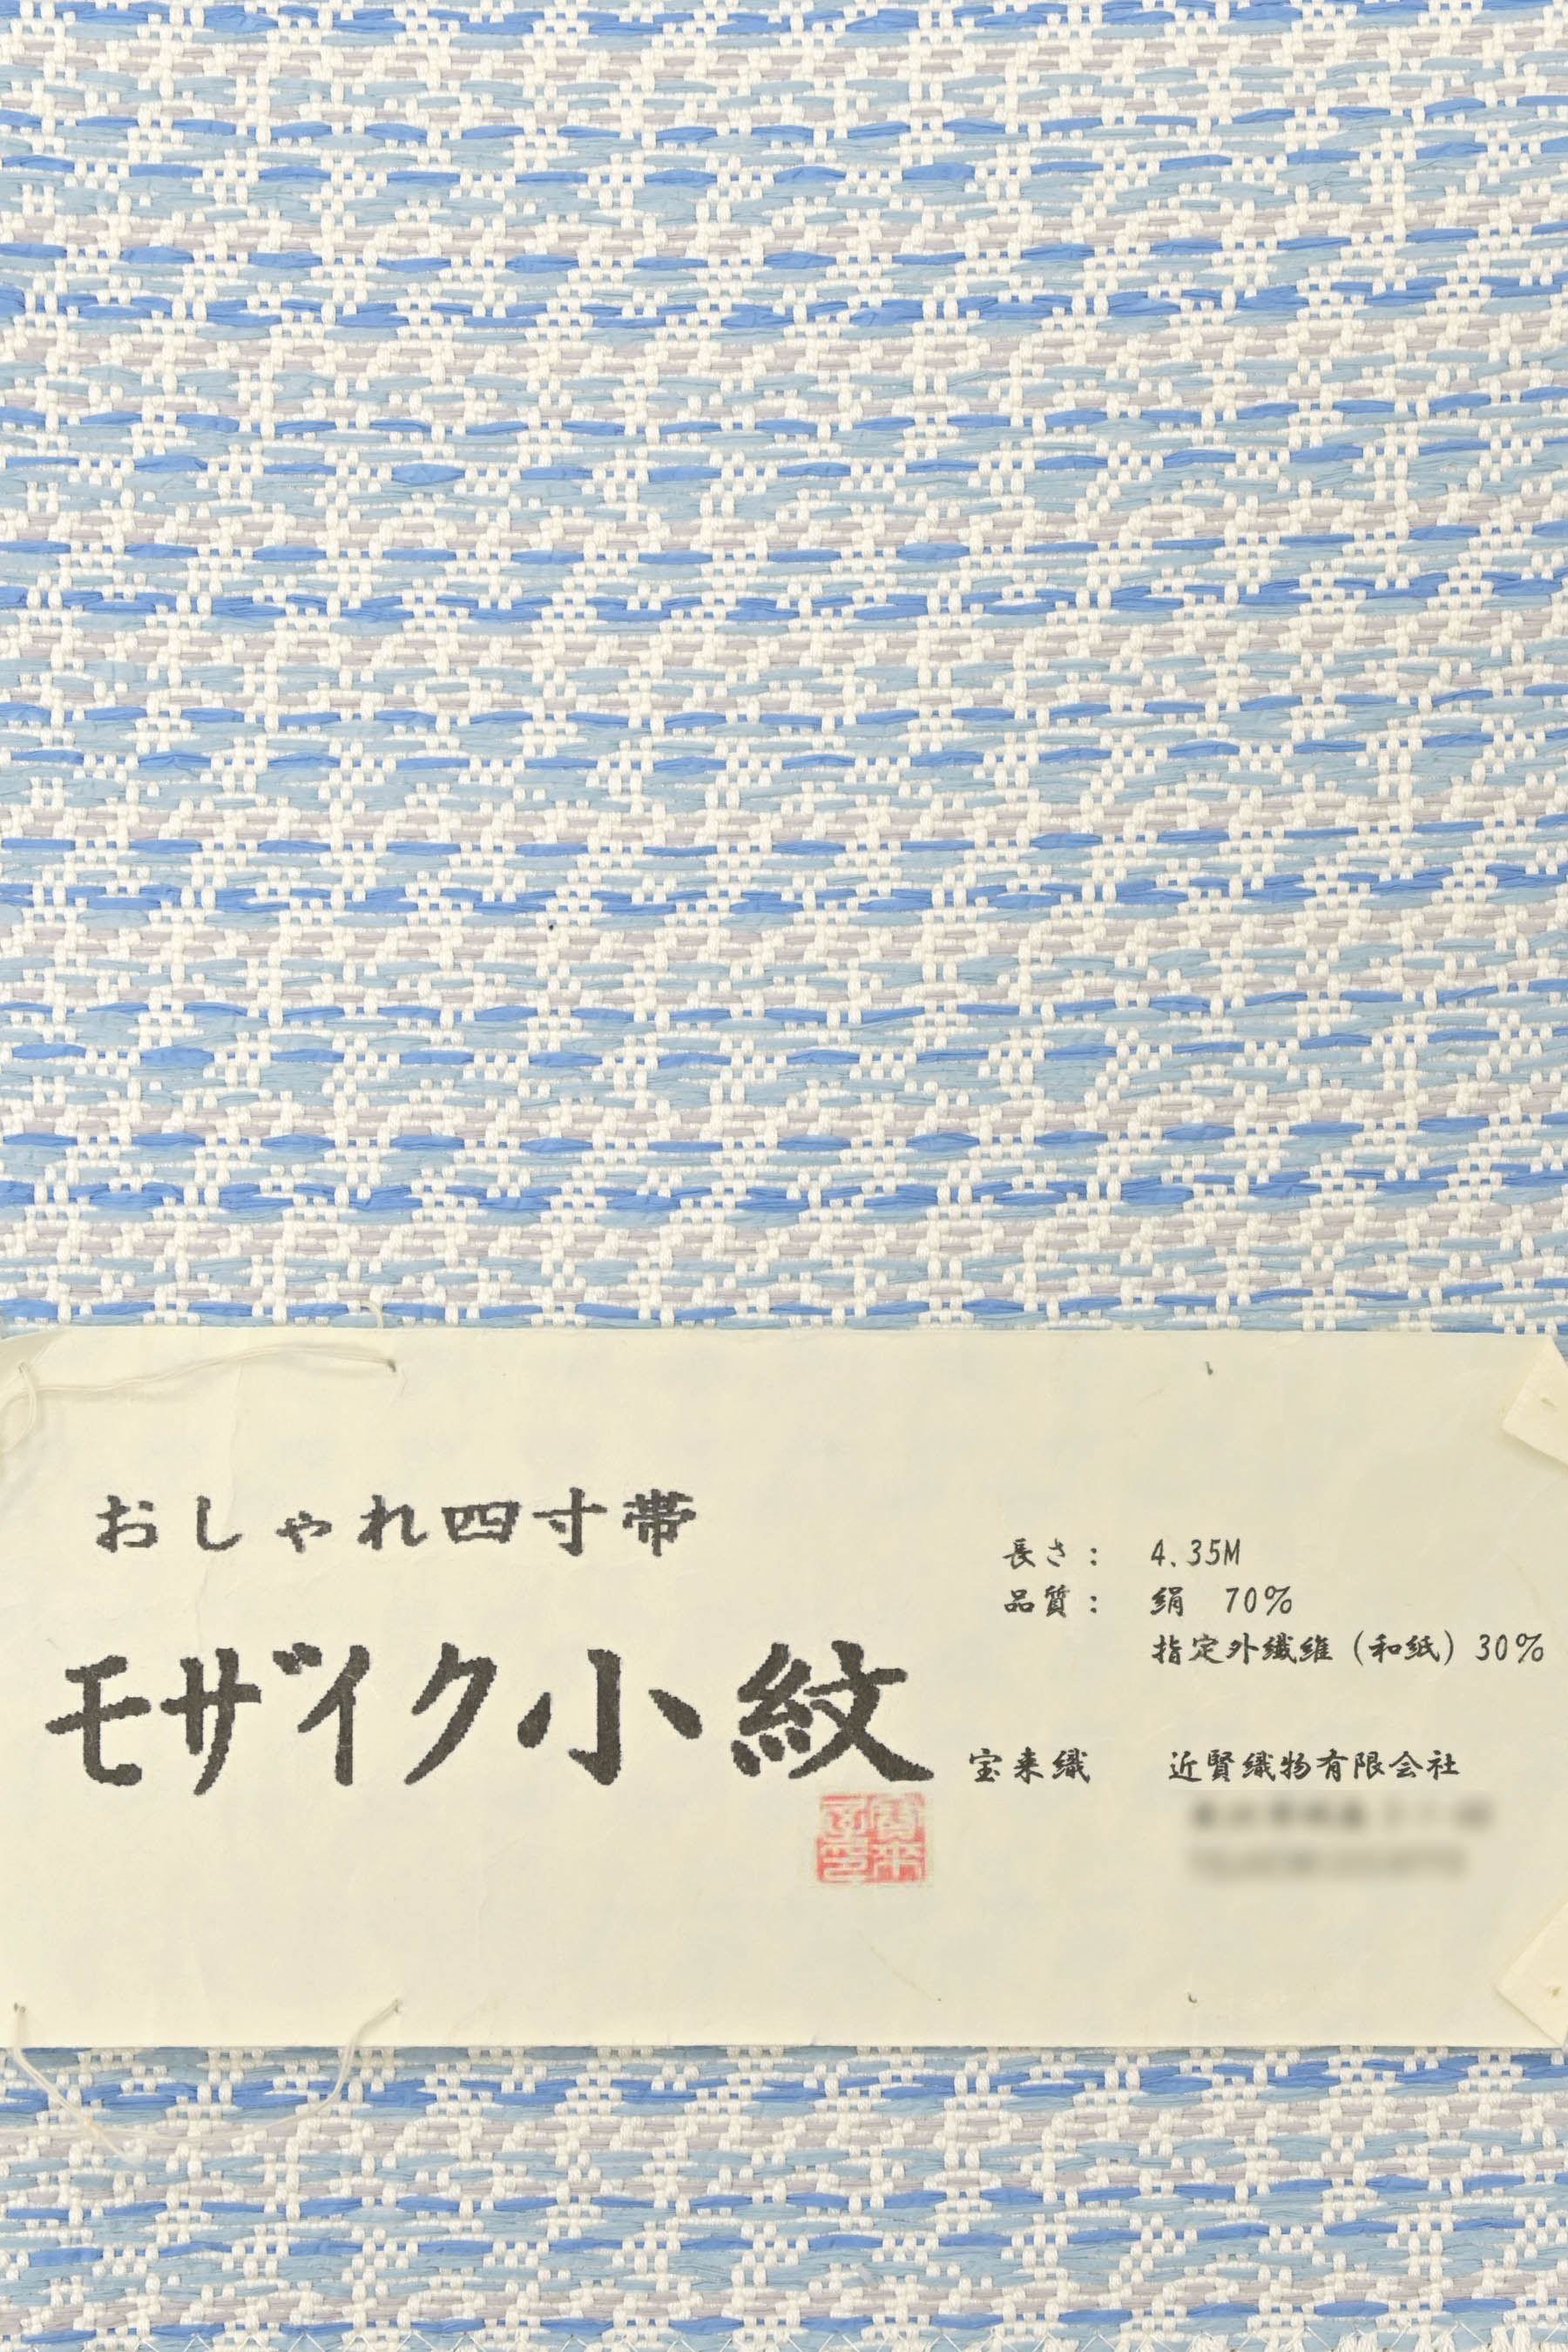 おしゃれ四寸帯
モザイク小紋
長さ: 4.35M
品質: 絹 70%
指定外繊維(和紙)30%
宝来織 近賢織物有限会社